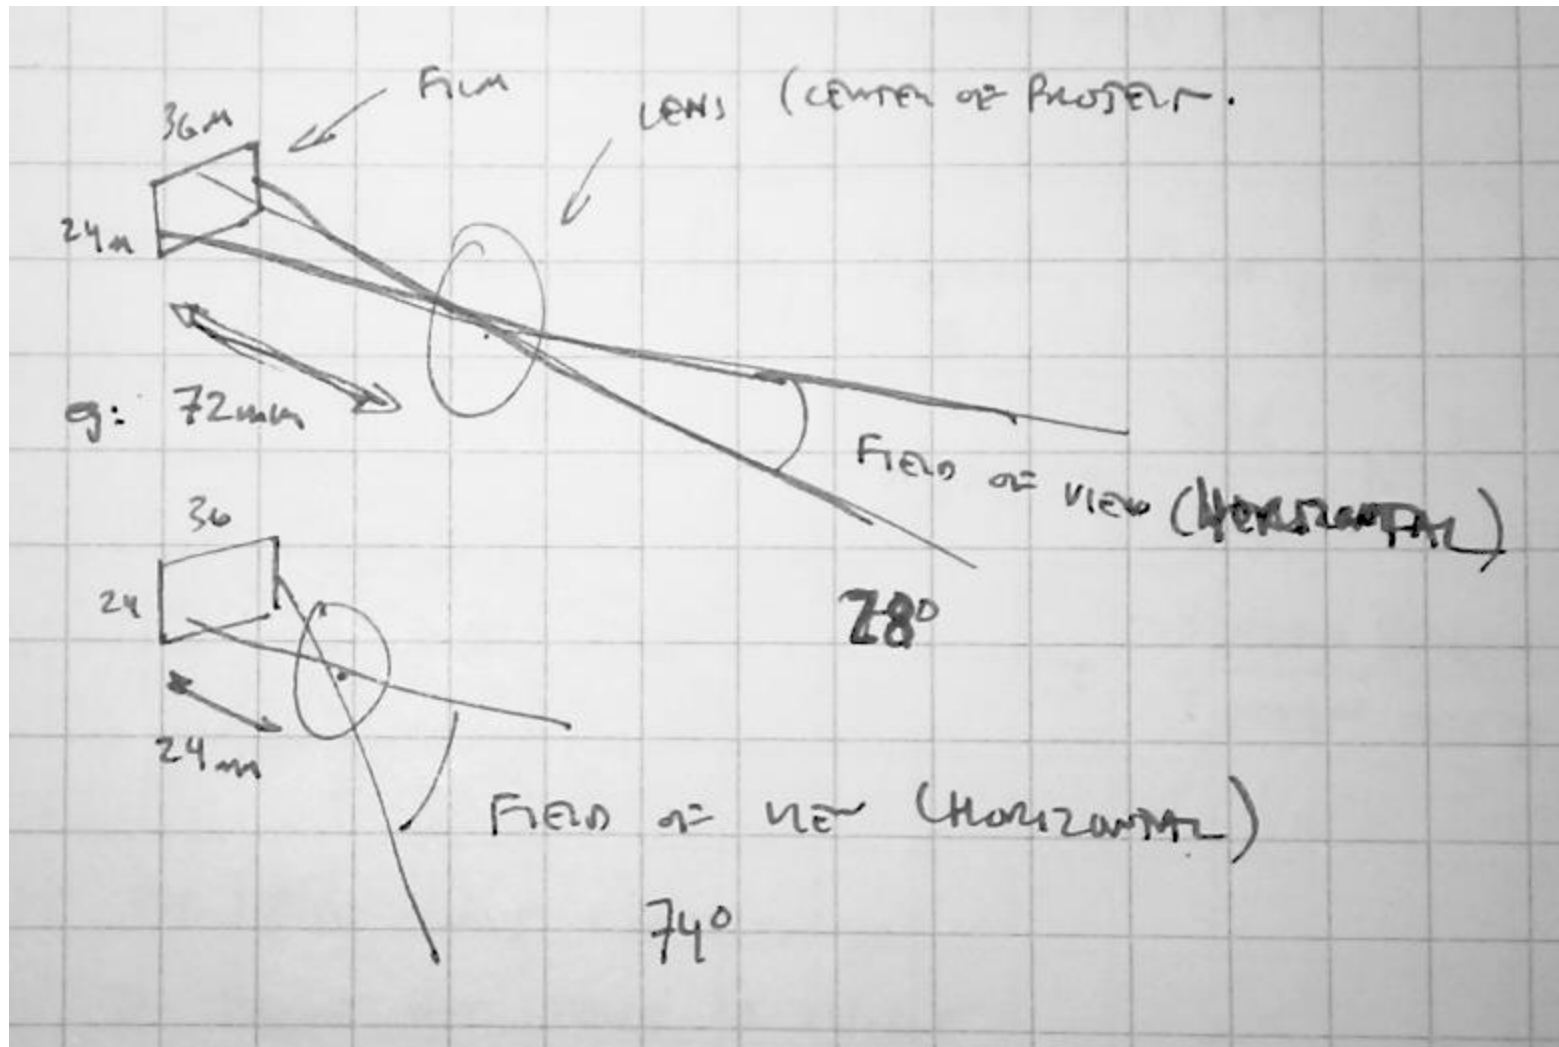 FILM
36m
LENS (CENTER OF PROJECT.
24m
eg: 72mm
FIELD OF VIEW (HORIZONTAL)
36
28°
24
24m
FIELD OF VIEW (HORIZONTAL)
74°